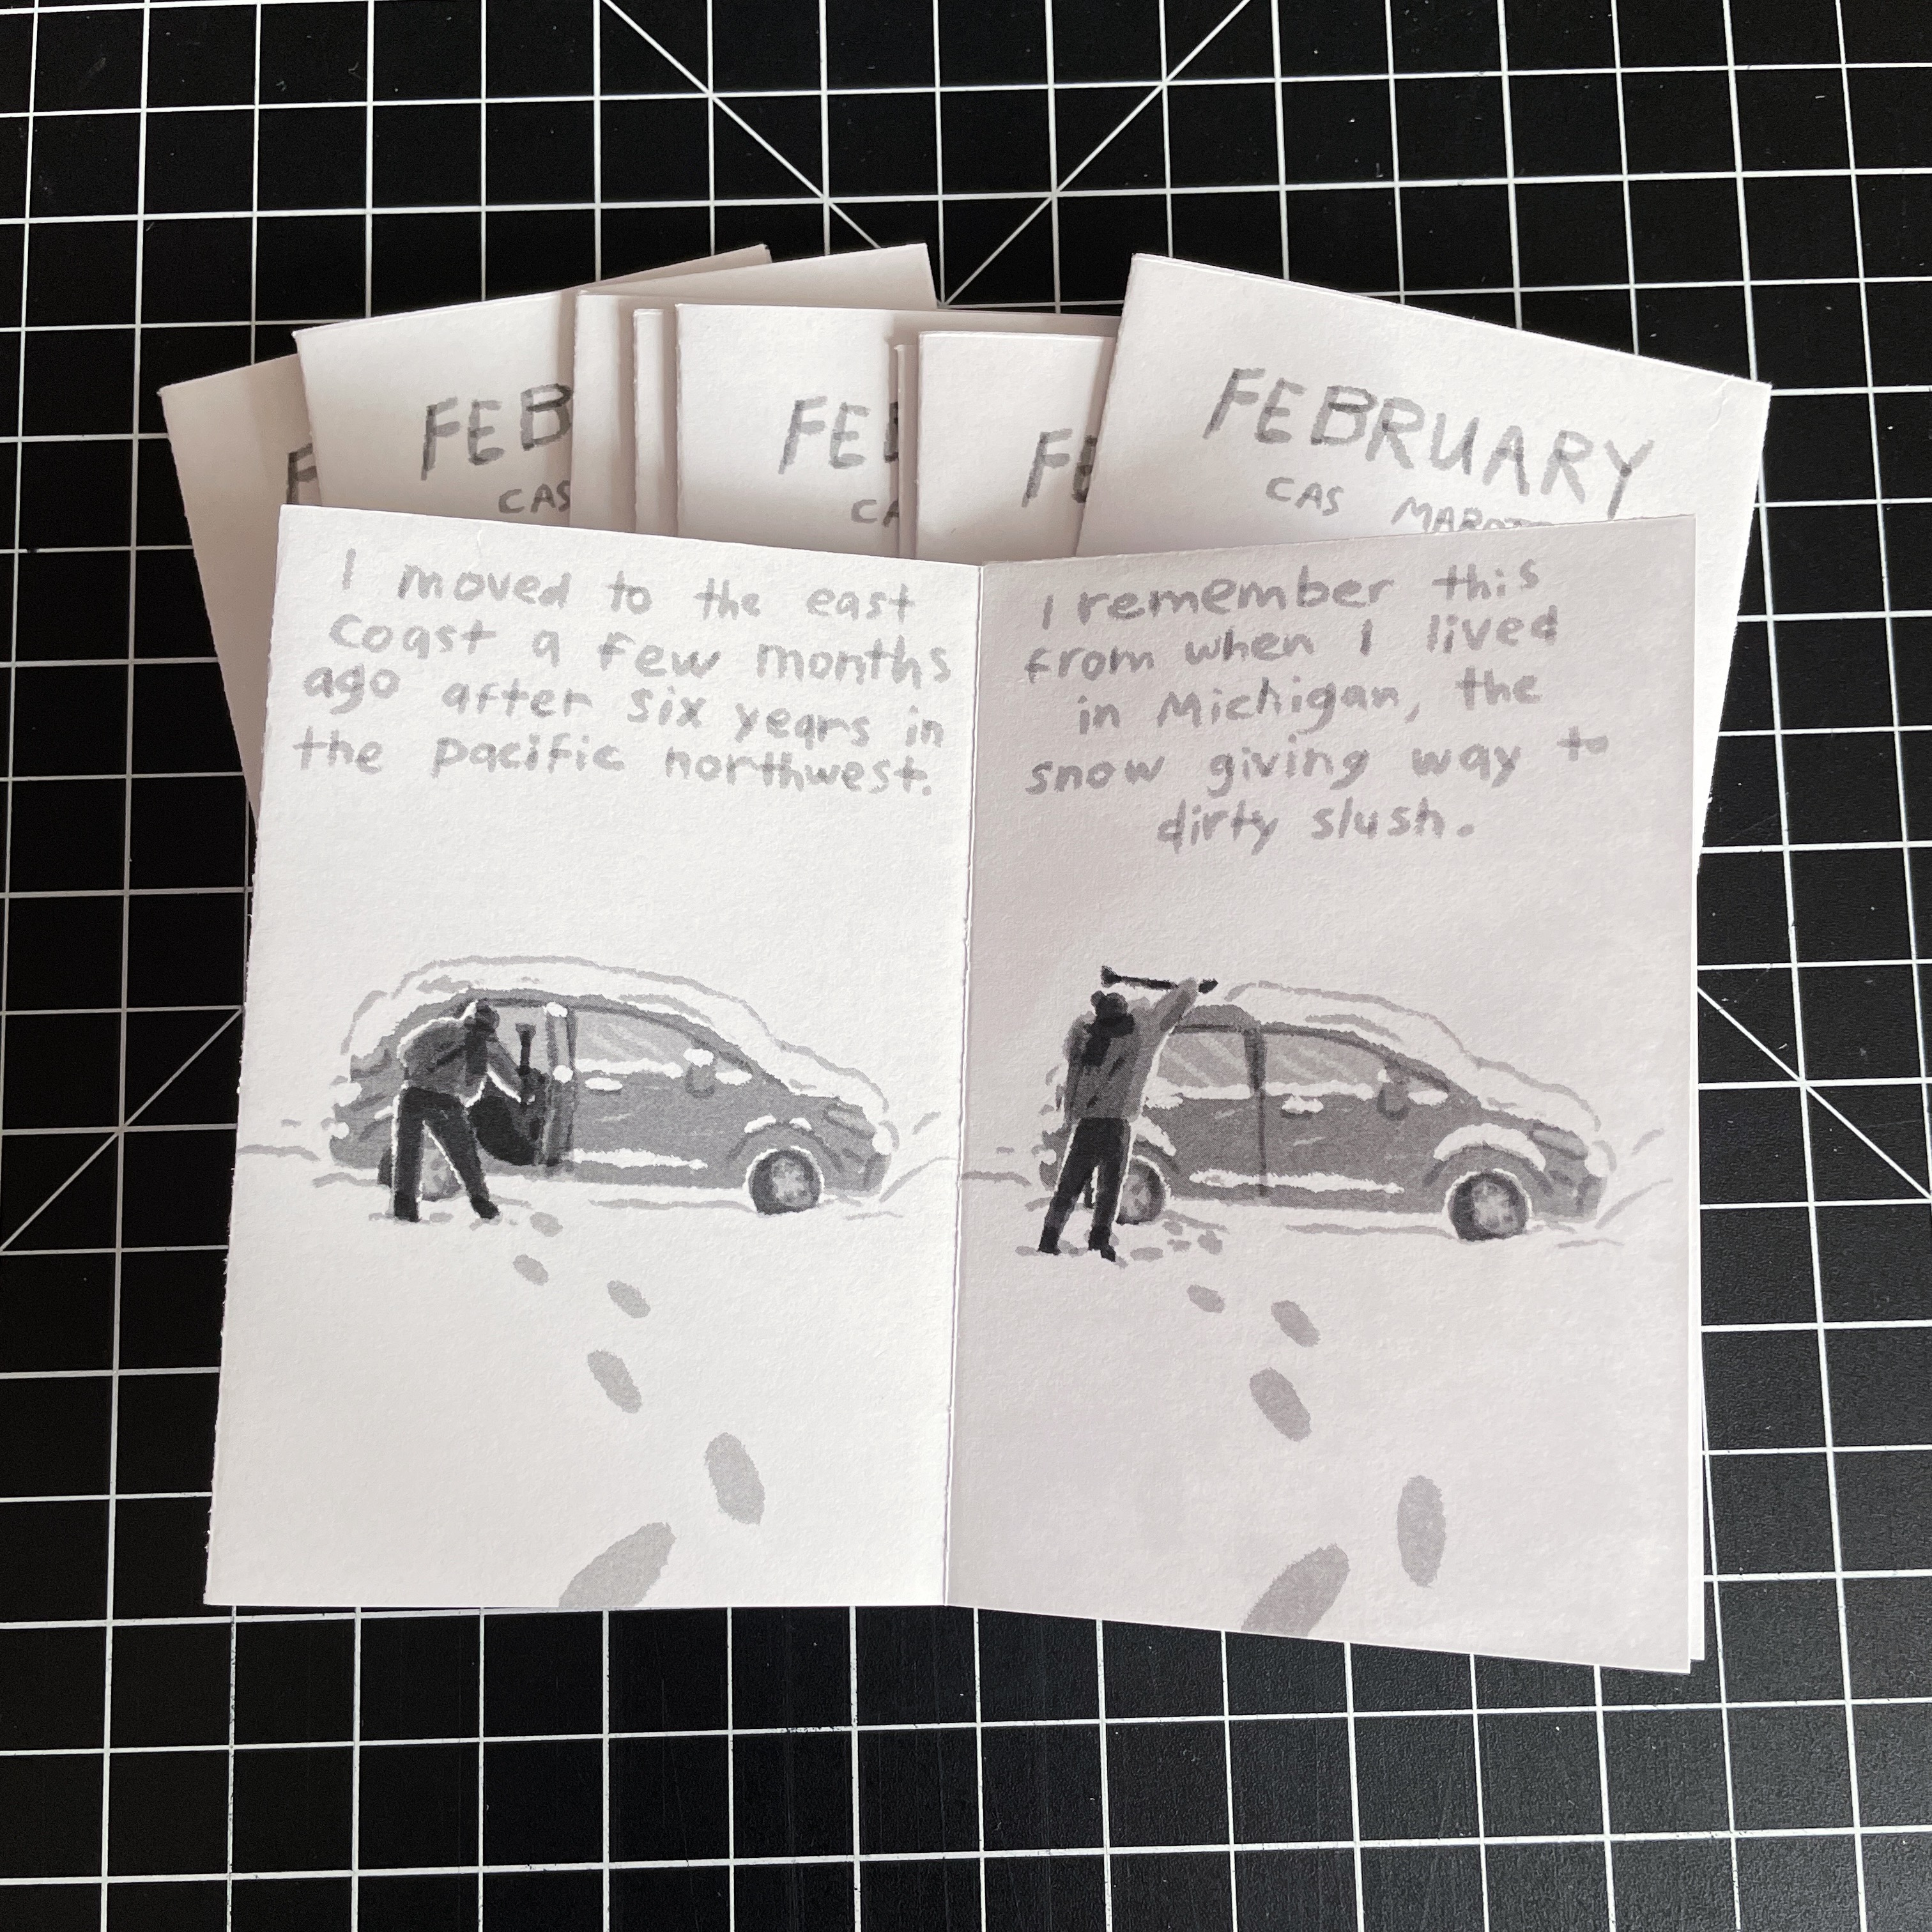 F
FEB
CAS
FEB
CA
FE
FEBRUARY
CAS
I moved to the east
coast a few months
ago after six years in
the pacific northwest.
I remember this
from when I lived
in Michigan, the
snow giving way to
dirty slush.